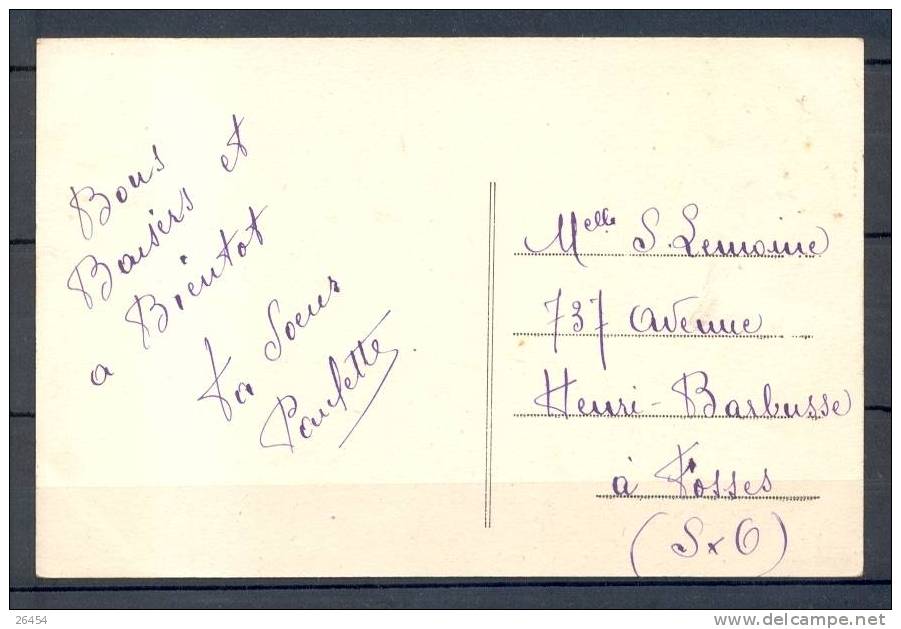 Bons
Baisers et
a Bientot
Ta Soeur
Paulette
Melle S. Lemoine
737 Avenue
Henri-Barbusse
à Fosses
(S x O)
26454
www.delcampe.net